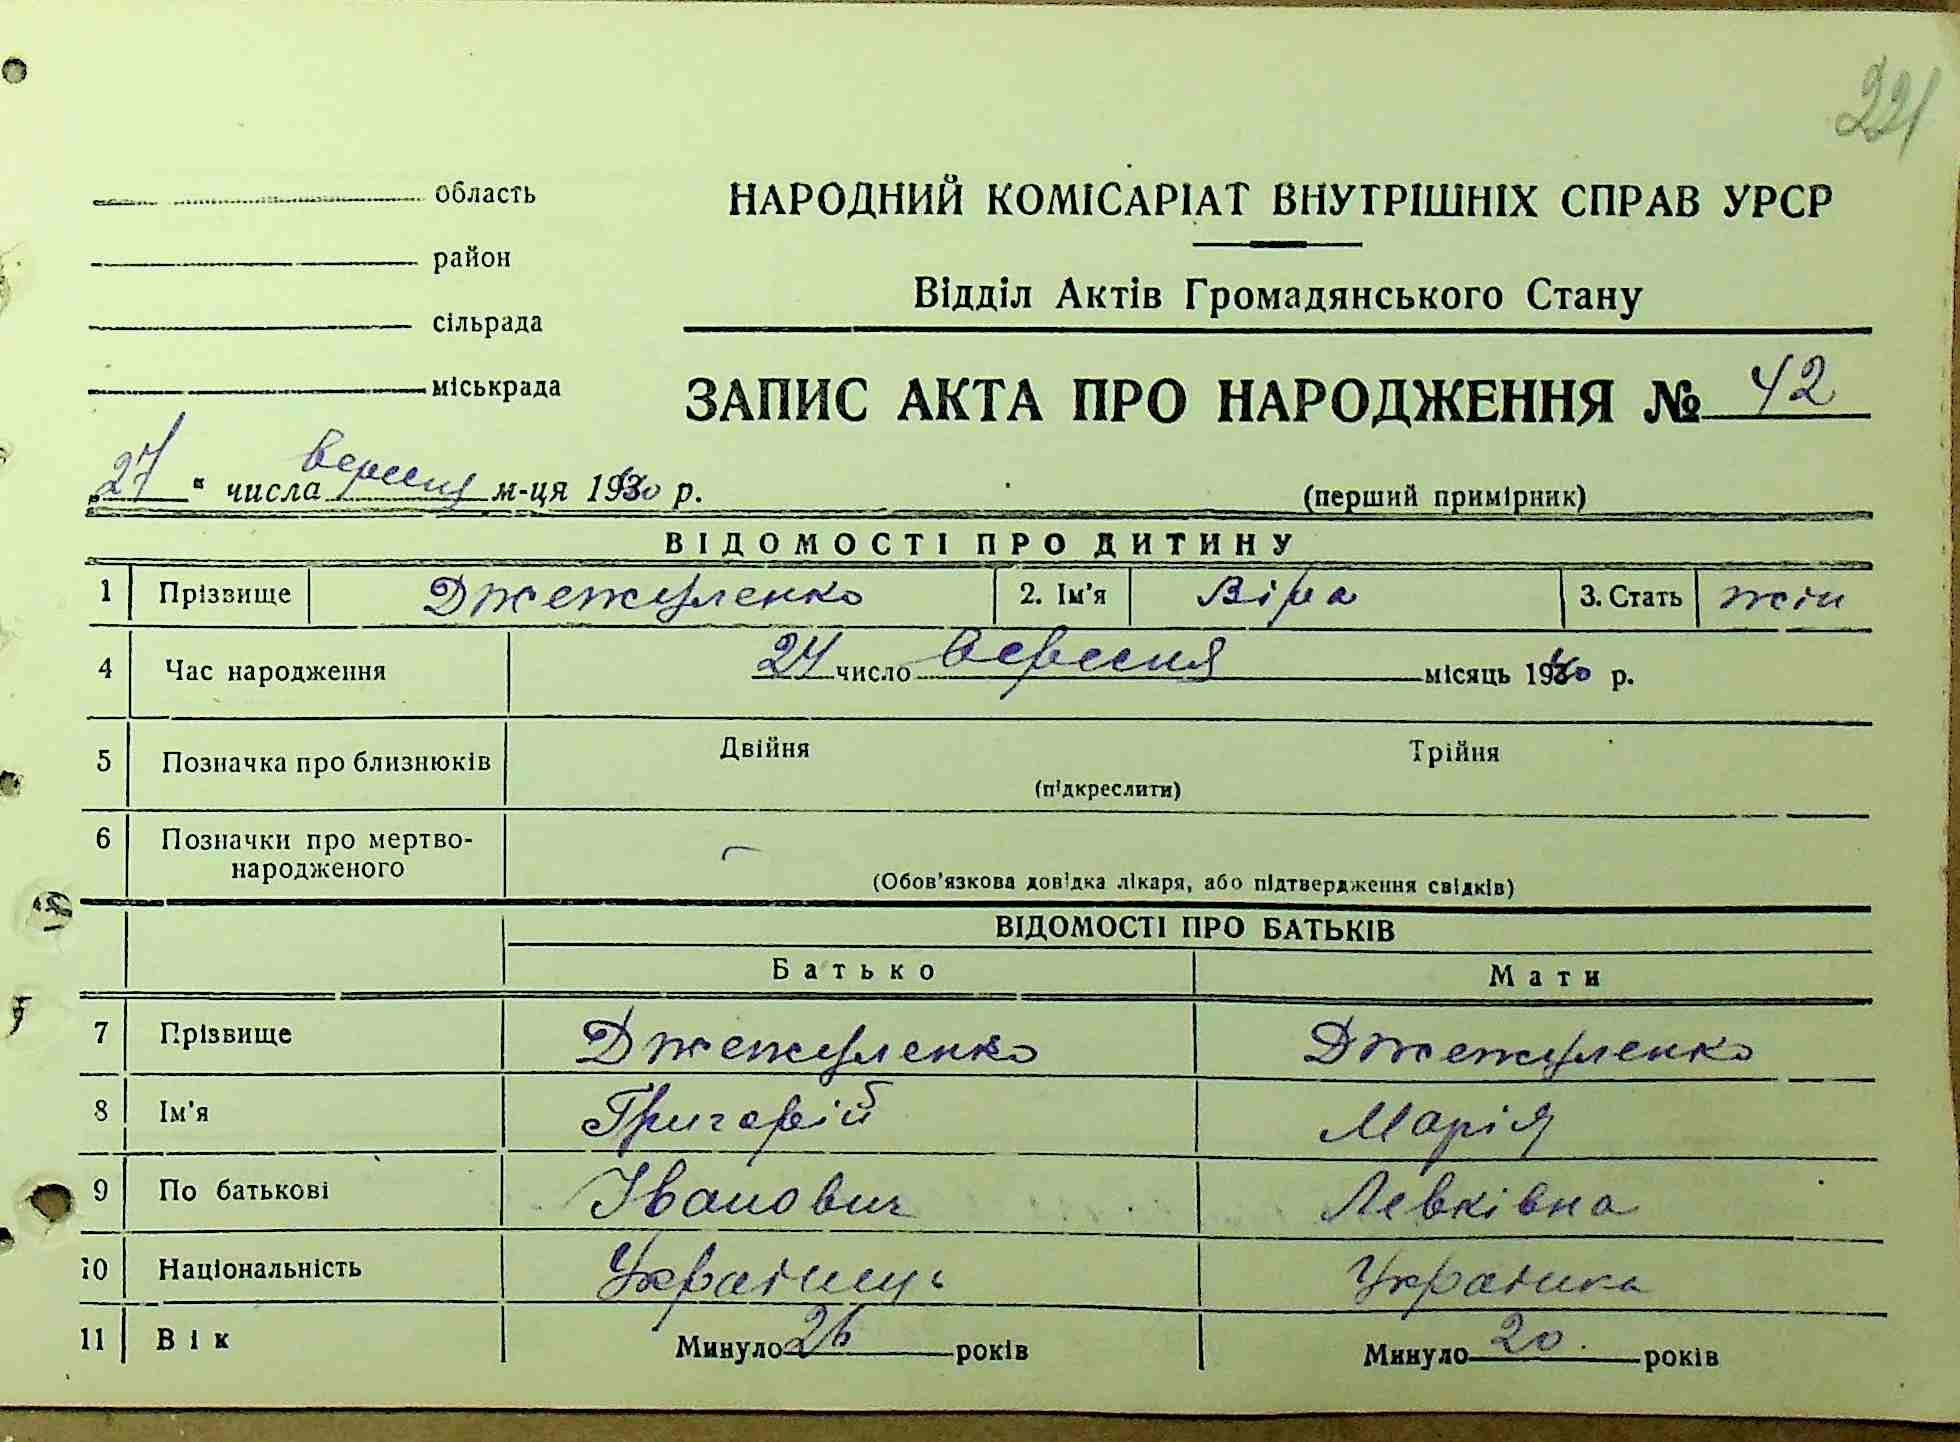 221
область
район
сільрада
міськрада
НАРОДНИЙ КОМІСАРІАТ ВНУТРІШНІХ СПРАВ УРСР
Відділ Актів Громадянського Стану
ЗАПИС АКТА ПРО НАРОДЖЕННЯ № 42
„27“ числа вересня м-ця 1940 р.
(перший примірник)
ВІДОМОСТІ ПРО ДИТИНУ
1 Прізвище Джежуленко 2. Ім'я Віра 3. Стать жін
4 Час народження 24 число вересня місяць 1940 р.
5 Позначка про близнюків Двійня Трійня
(підкреслити)
6 Позначки про мертво-
народженого
(Обов'язкова довідка лікаря, або підтвердження свідків)
ВІДОМОСТІ ПРО БАТЬКІВ
Батько Мати
7 Прізвище Джежуленко Джежуленко
8 Ім'я Григорій Марія
9 По батькові Іванович Левківна
10 Національність Українець Українка
11 Вік Минуло 26 років Минуло 20 років